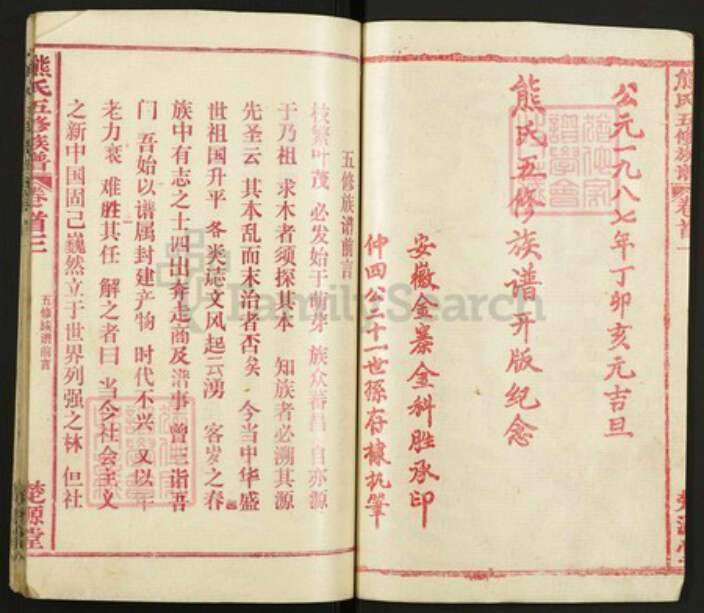 熊氏五修族谱 卷首一
公元一九八七年丁卯亥元吉旦
熊氏五修族谱开版纪念
安徽金寨金科胜承印
仲四公十一世孙存樑执笔
五修族谱前言
枝繁叶茂 必发始于萌芽 族众蕃昌 自亦源
于乃祖 求木者须探其本 知族者必溯其源
先圣云 其本乱而末治者否矣 今当中华盛
世祖国升平 各类志文风起云湧 客岁之春
族中有志之士四出奔走商及谱事 曾三诣吾
门 吾始以谱属封建产物 时代不兴 又以年
老力衰 难胜其任 解之者曰 当今社会主义
之新中国固己巍然立于世界列强之林 但社
熊氏五修族谱 卷首三
五修族谱前言
楚源堂
FamilySearch